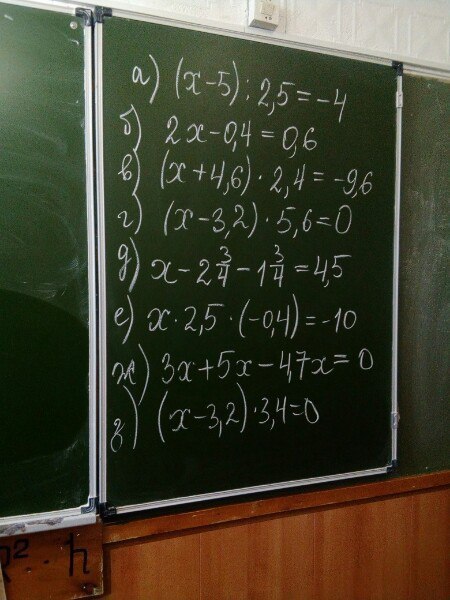 а) (x-5) : 2,5 = -4
б) 2x-0,4 = 0,6
в) (x+4,6) · 2,4 = -9,6
г) (x-3,2) · 5,6 = 0
д) x - 2 3/4 - 1 3/4 = 4,5
е) x · 2,5 · (-0,4) = -10
ж) 3x+5x-4,7x = 0
з) (x-3,2) · 3,4 = 0